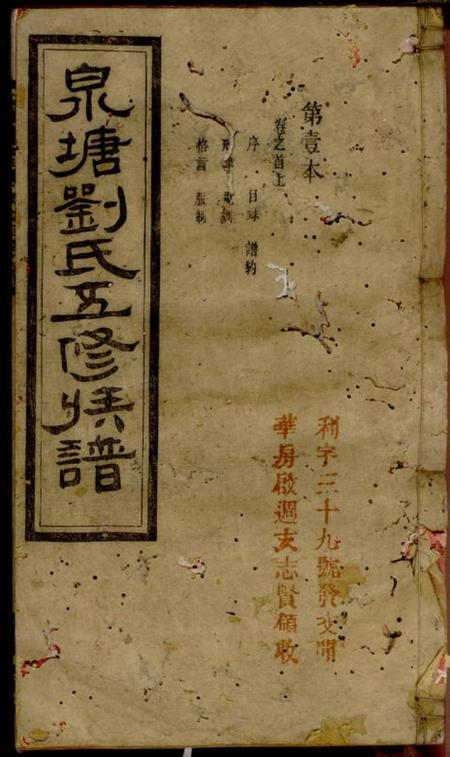 第壹本
卷之首上
序 目錄 譜約
格言 服制
泉塘劉氏五修族譜
利字三十九號發交開
華房啟週支志賢領收